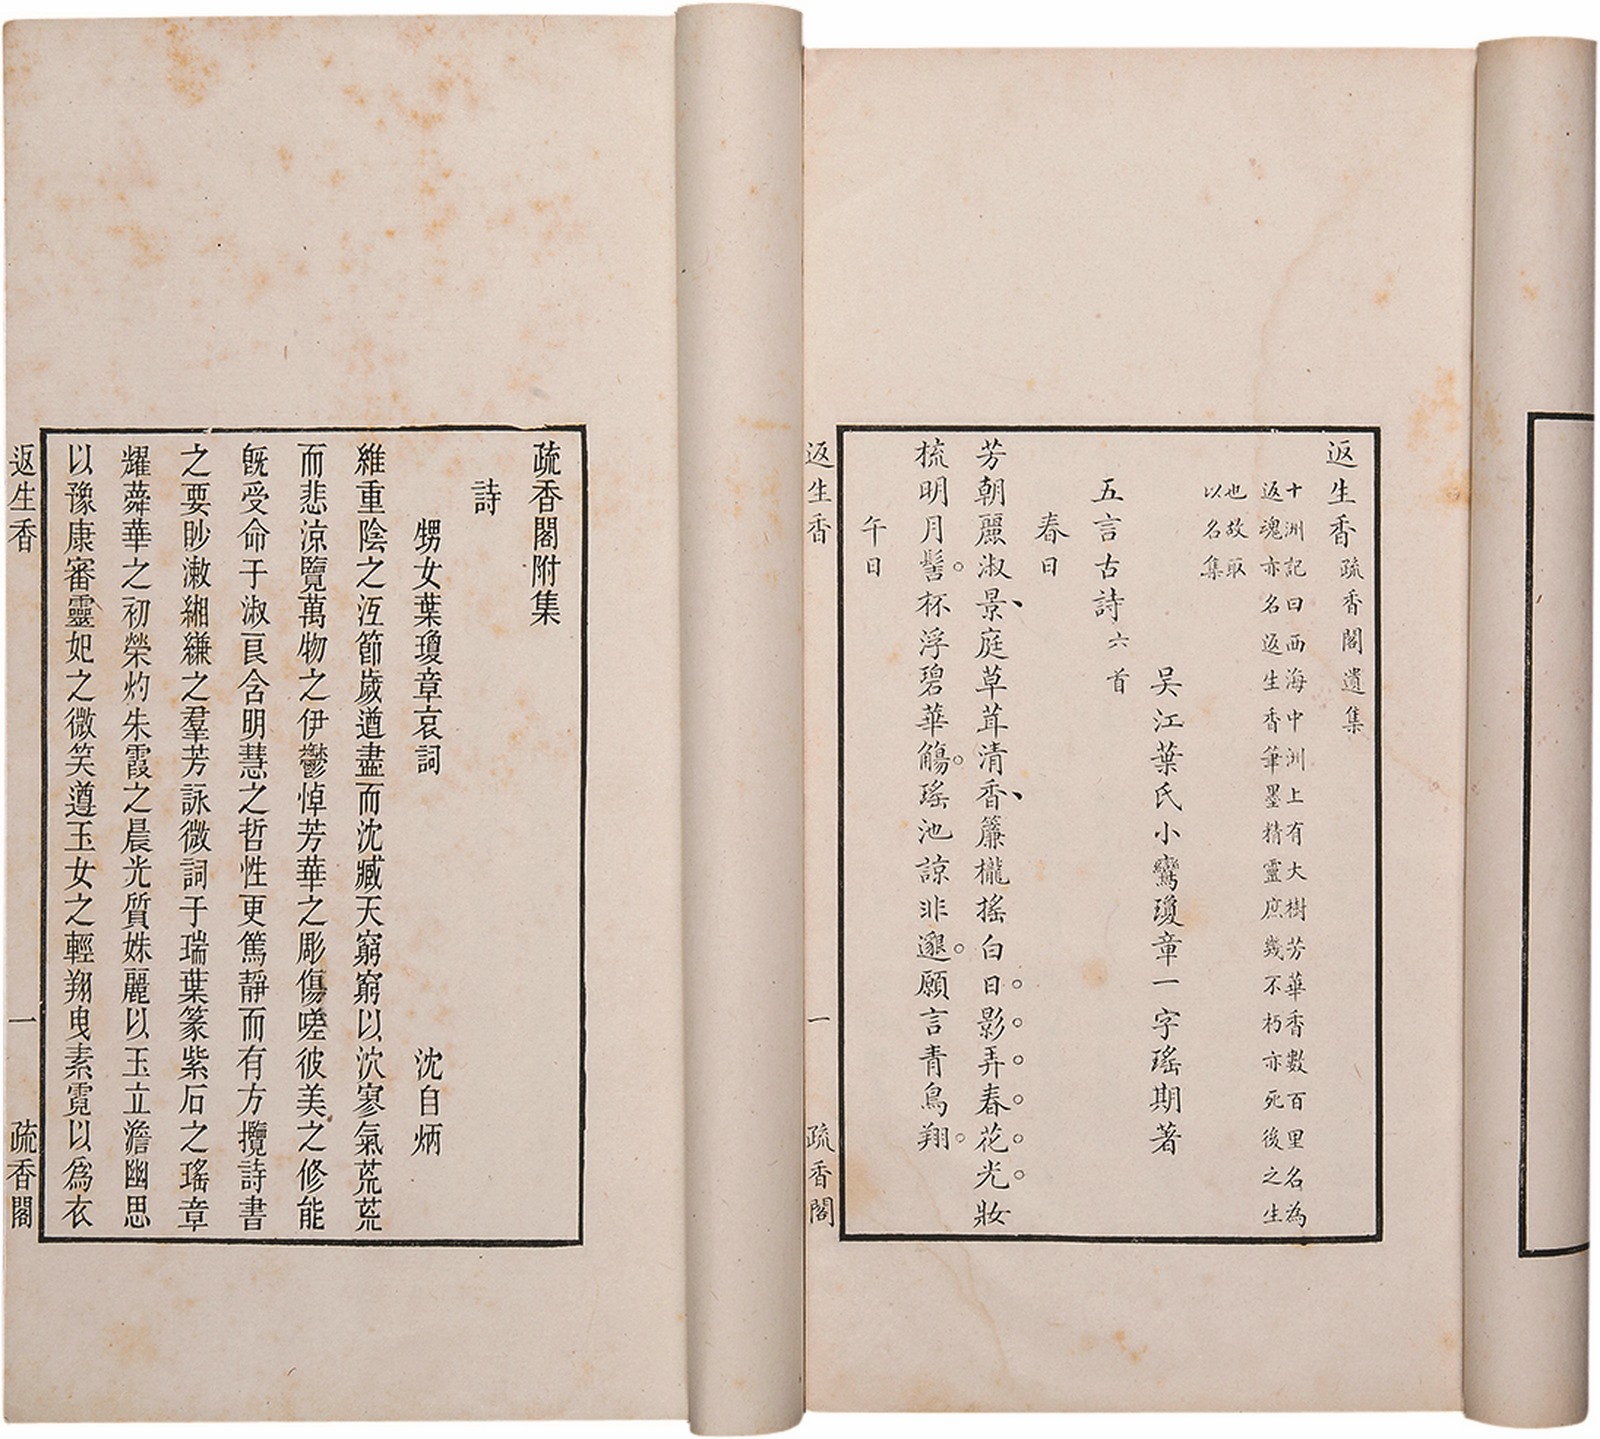 返生香疏香閣遺集
十洲記曰西海中洲上有大樹芳華香數百里名為
返魂亦名返生香筆墨精靈庶幾不朽亦死後之生
也故取
以名集
吳江葉氏小鸞瓊章一字瑤期著
五言古詩六首
春日
芳朝麗淑景庭草茸清香簾櫳搖白日影弄春花光妝
梳明月髻杯浮碧華觴瑤池諒非邈願言青鳥翔
午日
返生香 一 疏香閣
疏香閣附集
詩
甥女葉瓊章哀詞 沈自炳
維重陰之沍節歲遒盡而沈臧天窮窮以泬寥氣荒荒
而悲涼覽萬物之伊鬱悼芳華之彫傷嗟彼美之修能
旣受命于淑㫐含明慧之哲性更篤靜而有方攬詩書
之要眇漱緗縑之羣芳詠微詞于瑞葉篆紫石之瑤章
耀蕣華之初榮灼朱霞之晨光質姝麗以玉立澹幽思
以豫康審靈妃之微笑遵玉女之輕翔曳素霓以爲衣
返生香 一 疏香閣